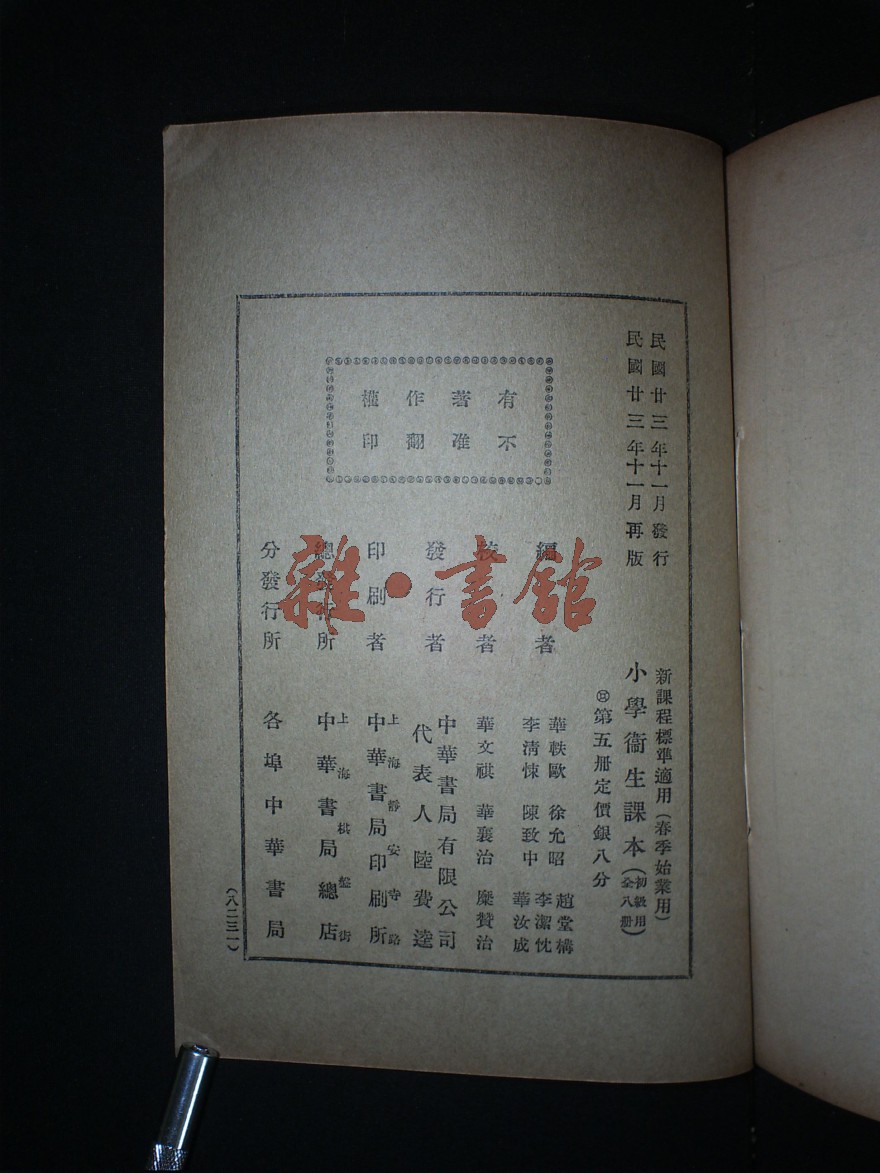 民國廿三年十一月發行
民國廿三年十一月再版
新課程標準適用(春季始業用)
小學衞生課本(初級用全八册)
第五册定價銀八分
有著作權
不准翻印
編者
華軼歐 徐允昭 趙堂構
李清悚 陳致中 李潔忱
華汝成
校者
華文祺 華襄治 糜贊治
發行者
中華書局有限公司
代表人陸費逵
印刷者
上海靜安寺路
中華書局印刷所
總發行所
上海棋盤街
中華書局總店
分發行所
各埠中華書局
(八二三一)
雜·書館